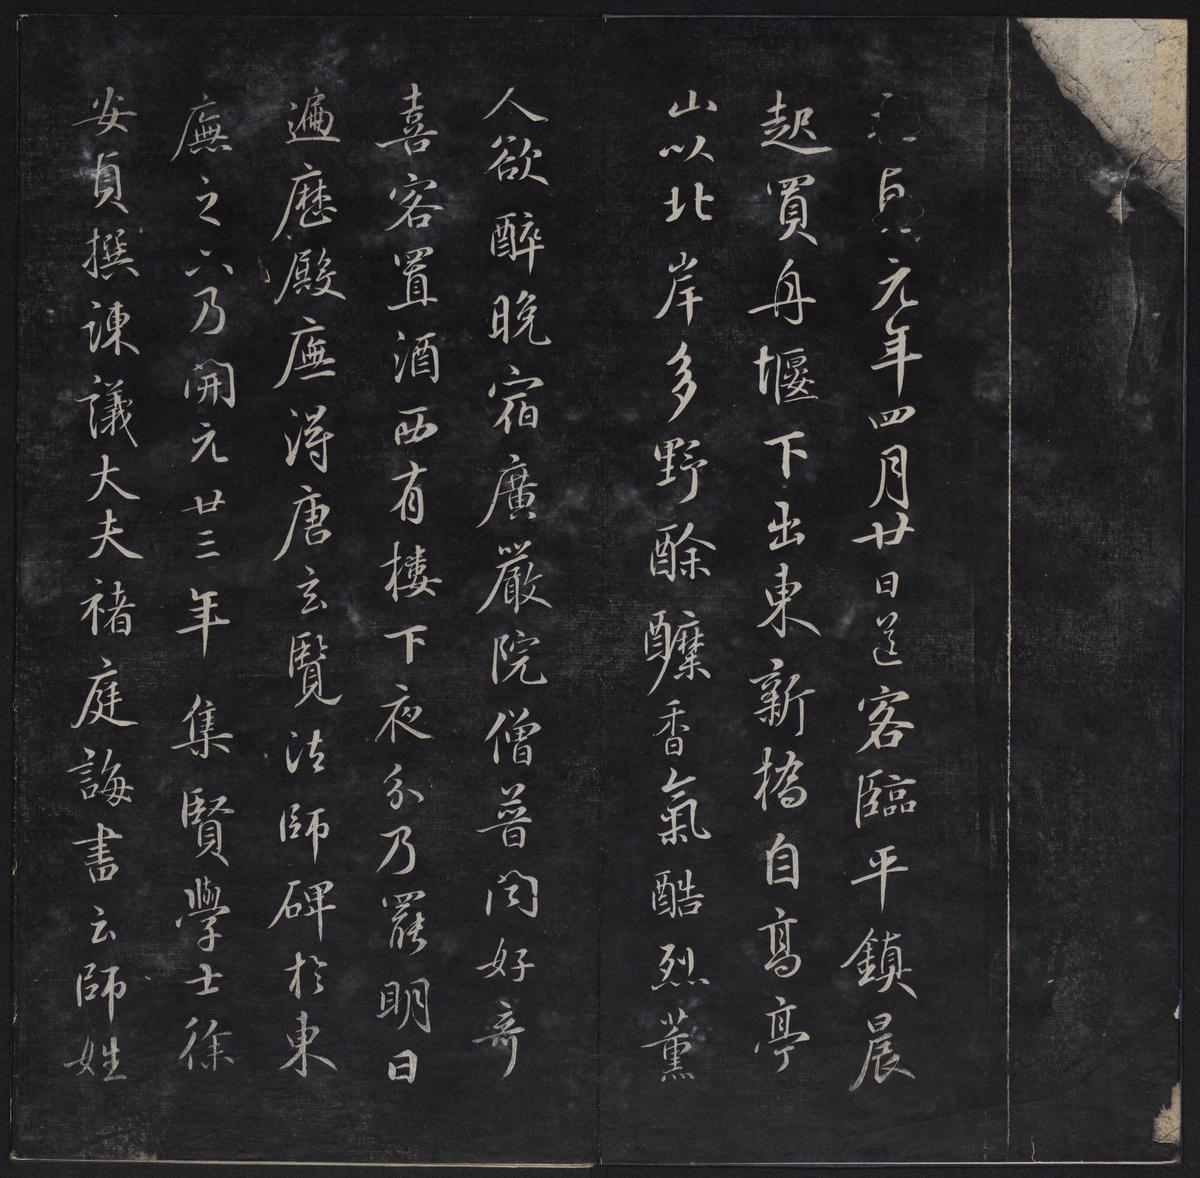 元年四月廿日送客臨平鎮晨
起買舟堰下出東新橋自高亭
山以北岸多野酴醾香氣酷烈薰
人欲醉晚宿廣嚴院僧普聞好奇
喜客置酒西有樓下夜分乃罷明日
遍歷殿廡得唐玄覽法師碑於東
廡之下乃開元廿三年集賢學士徐
安貞撰諫議大夫褚庭誨書云師姓